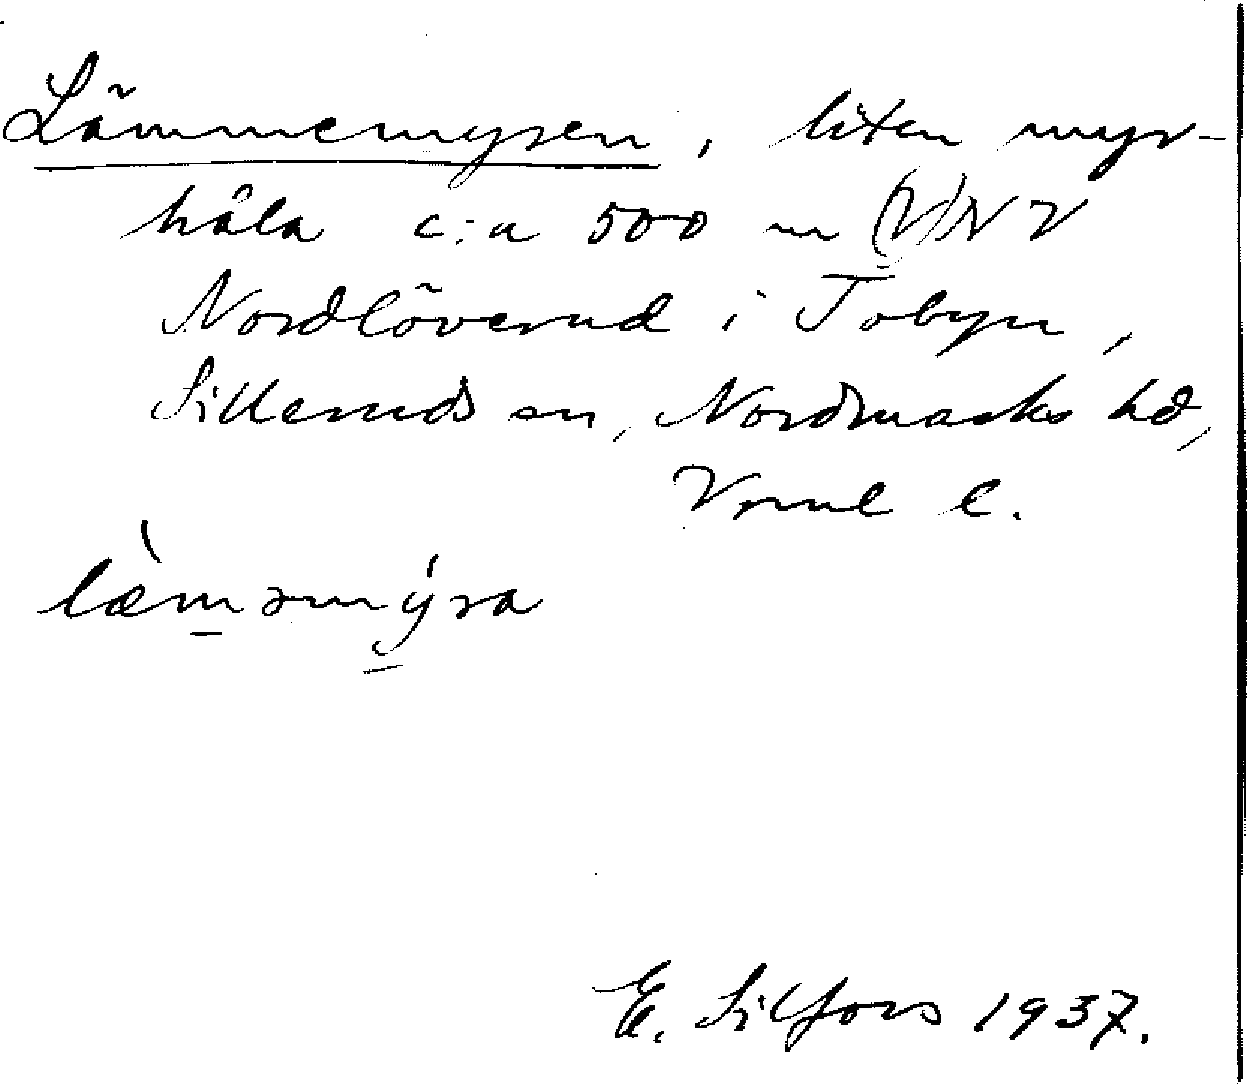 Lämmemyren, liten myr-
håla c:a 500 m (V)NV
Nordlöverud i Tobyn,
Silleruds sn, Nordmarks hd,
Vrml l.
læ̀m̲əmý̲ra
E. Silfors 1937.